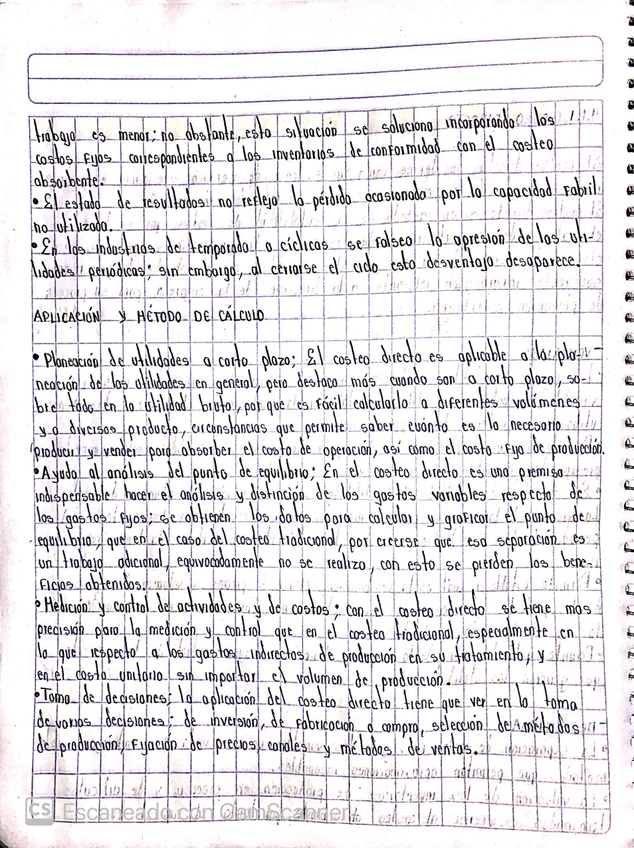 trabajo es menor; no obstante, esta situación se soluciona incorporando los
costos fijos correspondientes a los inventarios de conformidad con el costeo
absorbente.
• El estado de resultados no refleja la pérdida ocasionada por la capacidad fabril
no utilizada.
• En las industrias de temporada o cíclicas se falsea la apresión de las uti-
lidades periódicas; sin embargo, al cerrarse el ciclo esta desventaja desaparece.
APLICACIÓN Y MÉTODO DE CÁLCULO
• Planeación de utilidades a corto plazo; El costeo directo es aplicable a la pla-
neación de las utilidades en general, pero destaca más cuando son a corto plazo, so-
bre todo en la utilidad bruta, por que es fácil calcularla a diferentes volúmenes
y a diversos producto, circunstancias que permite saber cuánto es lo necesario
producir y vender para absorber el costo de operación, así como el costo fijo de producción.
• Ayuda al análisis del punto de equilibrio; En el costeo directo es una premisa
indispensable hacer el análisis y distinción de los gastos variables respecto de
los gastos fijos; se obtienen los datos para calcular y graficar el punto de
equilibrio, que en el caso del costeo tradicional, por creerse que esa separación es
un trabajo adicional, equivocadamente no se realiza, con esto se pierden los bene-
ficios obtenidos.
• Medición y control de actividades y de costos; con el costeo directo se tiene más
precisión para la medición y control que en el costeo tradicional, especialmente en
lo que respecta a los gastos indirectos de producción en su tratamiento, y
en el costo unitario sin importar el volumen de producción.
• Toma de decisiones; la aplicación del costeo directo tiene que ver en la toma
de varias decisiones: de inversión, de fabricación o compra, selección de métodos
de producción, fijación de precios, canales y métodos de ventas.
CS Escaneado con CamScanner